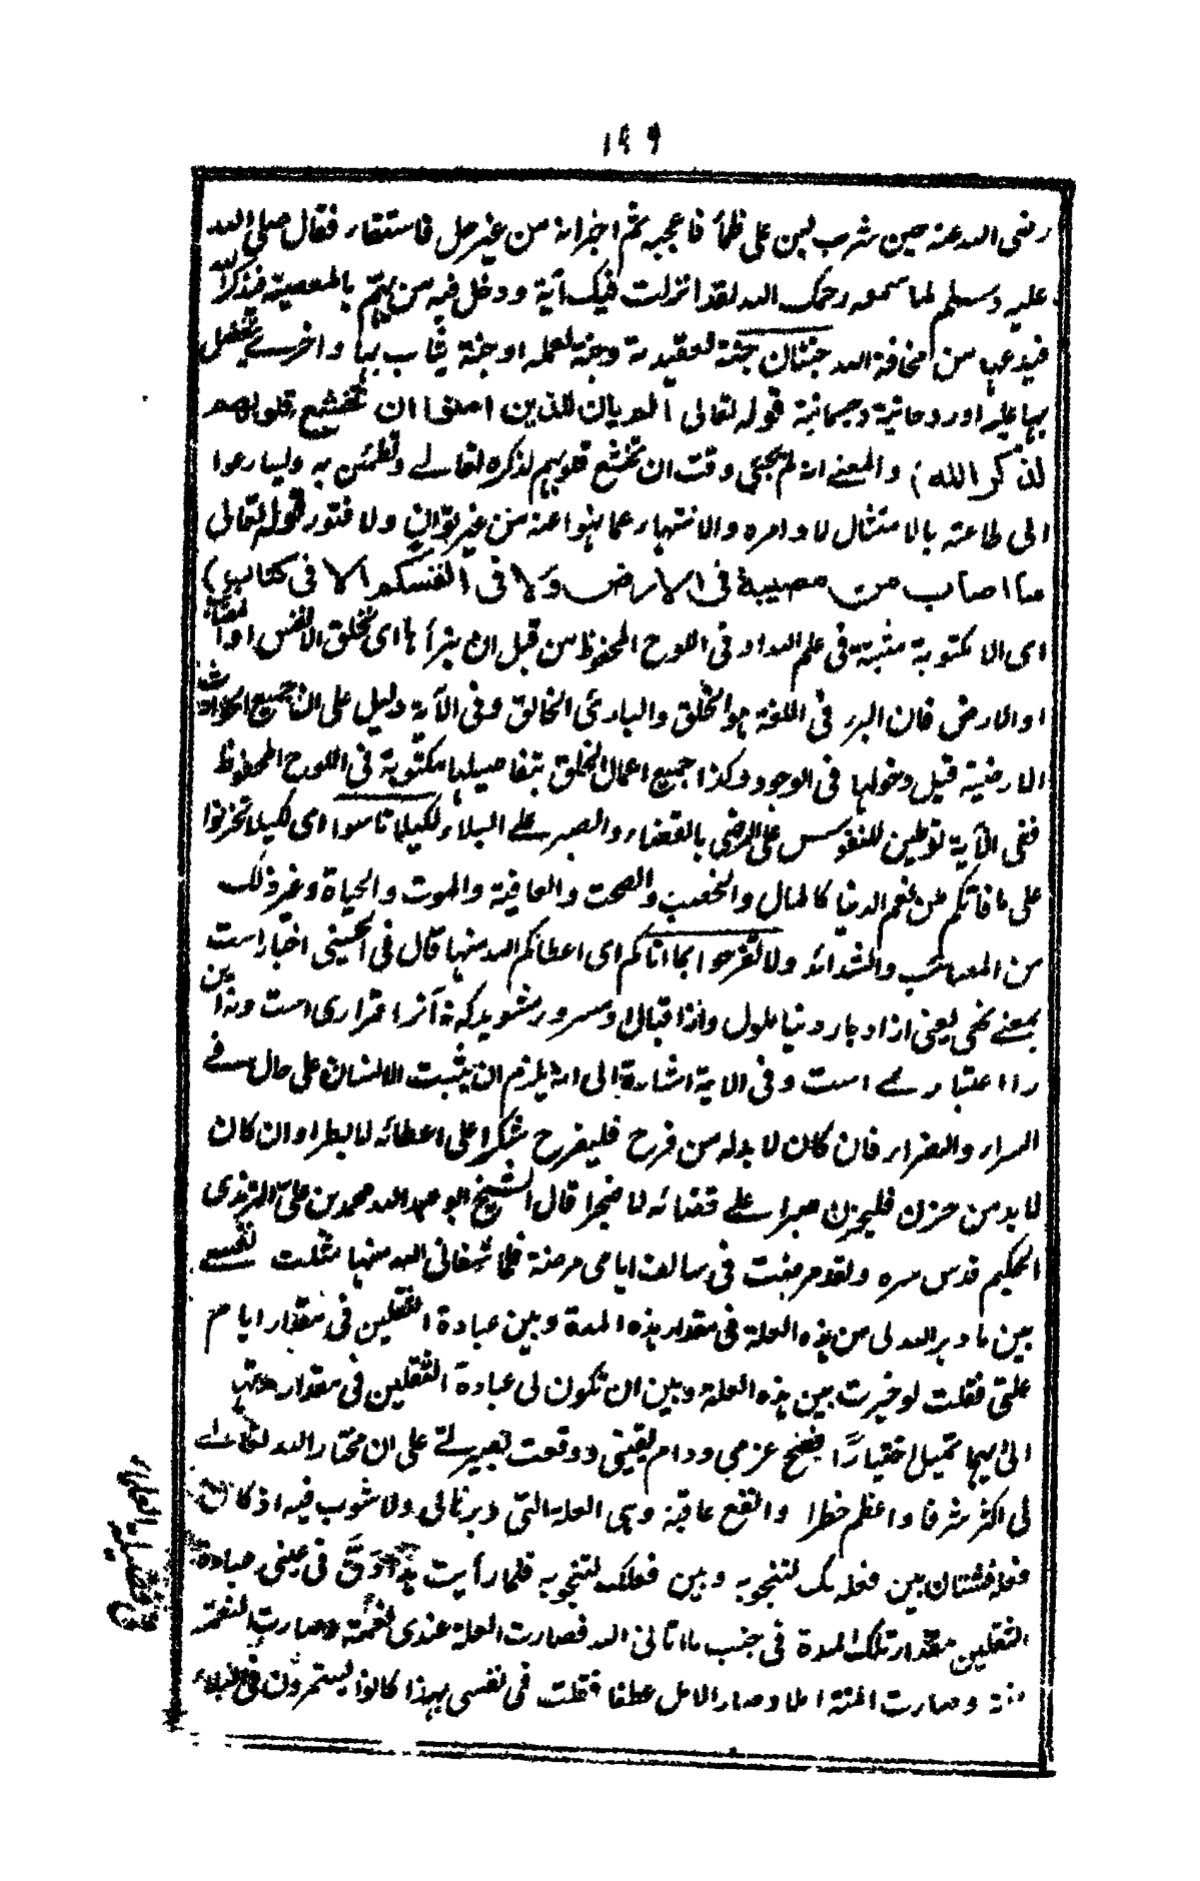 ١٤٩
رضى الله عنه حين شرب لبن على ظمأ فاعجبه ثم اخبر انه من غير حل فاستقاء فقال صلى الله
عليه وسلم لما سمعه رحمك الله لقد انزلت فيك آية ودخل فيه من يهم بالمعصية فيذكر الله
فيدعها من مخافة الله جنتان جنة لعقيدته وجنة لعمله او جنة يثاب بها واخرى يتفضل
بها عليه او روحانية وجسمانية قوله تعالى الم يان للذين امنوا ان تخشع قلوبهم
لذكر الله) والمعنے انه لم يجئ وقت ان تخشع قلوبهم لذكره تعالے وتطمئن به وليسارعوا
الى طاعته بالامتثال لاوامره والانتهاء عما نهوا عنه من غير توان ولا فتور قوله تعالى
ما اصاب من مصيبة فى الارض ولا فى انفسكم الا فى كتاب)
اى الا مكتوبة مثبتة فى علم الله او فى اللوح المحفوظ من قبل ان نبرأها اى نخلق الانفس او المصائب
او الارض فان البرء فى اللغة هو الخلق والبارئ الخالق وفى الآية دليل على ان جميع الحوادث
الارضية قبل دخولها فى الوجود وكذا جميع اعمال الخلق بتفاصيلها مكتوبة فى اللوح المحفوظ
ففى الآية توطين للنفوس على الرضى بالقضاء والصبر علے البلاء لكيلا تاسوا اى لكيلا تحزنوا
على ما فاتكم من نعم الدنيا كالمال والخصب والصحت والعافية والموت والحياة وغير ذلك
من المصائب والشدائد ولا تفرحوا بما اتاكم اى اعطاكم الله منها قال فى الحسينى اخبار است
بمعنے نهى يعنى از ادبار دنيا ملول واز اقبال او مسرور مشويد كه نه آنرا قرارى است ونه اين
را اعتبارے است وفى الاية اشارة الى انه يلزم ان يثبت الانسان على حال فے
السراء والضراء فان كان لا بد له من فرح فليفرح شكرا على اعطائه لا بطرا وان كان
لا بد من حزن فليحزن صبرا علے قضائه لا ضجرا قال الشيخ ابو عبد الله محمد بن على الترمذى
الحكيم قدس سره ولقد مرضت فى سالف ايامى مرضة فلما شفانى الله منها مثلت نفسے
بين ما دبر الله لى من هذه العلة فى مقدار هذه المدة وبين عبادة الثقلين فى مقدار ايام
علتى فقلت لو خيرت بين هذه العلة وبين ان تكون لى عبادة الثقلين فى مقدار مدتها
الى ايهما تميل اختيارًا فصح عزمى ودام يقينى ووقعت بصيرتى على ان مختار الله تعالے
لى اكثر شرفا واعظم خطرا وانفع عاقبة وهى العلة التى دبرها لى ولا شوب فيه اذ كان
فعله فشتان بين فعله بك لتنجو به وبين فعلك لتنجو به فلما رأيت هذا دق فى عينى عبادة
الثقلين مقدار تلك المدة فى جنب ما اتانى الله فصارت العلة عندى نعمة وصارت النعمة
منة وصارت المنة املا وصار الامل عطفا فقلت فى نفسى بهذا كانوا يستمرون فى البلاء